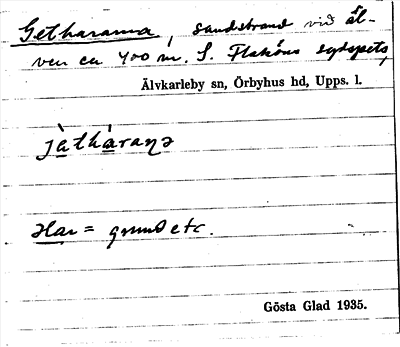 Getharama, sandstrand vid äl-
ven ca 400 m. S. Flaköns sydspets,
Älvkarleby sn, Örbyhus hd, Upps. l.
jàthàranə
Har = grund etc.
Gösta Glad 1935.